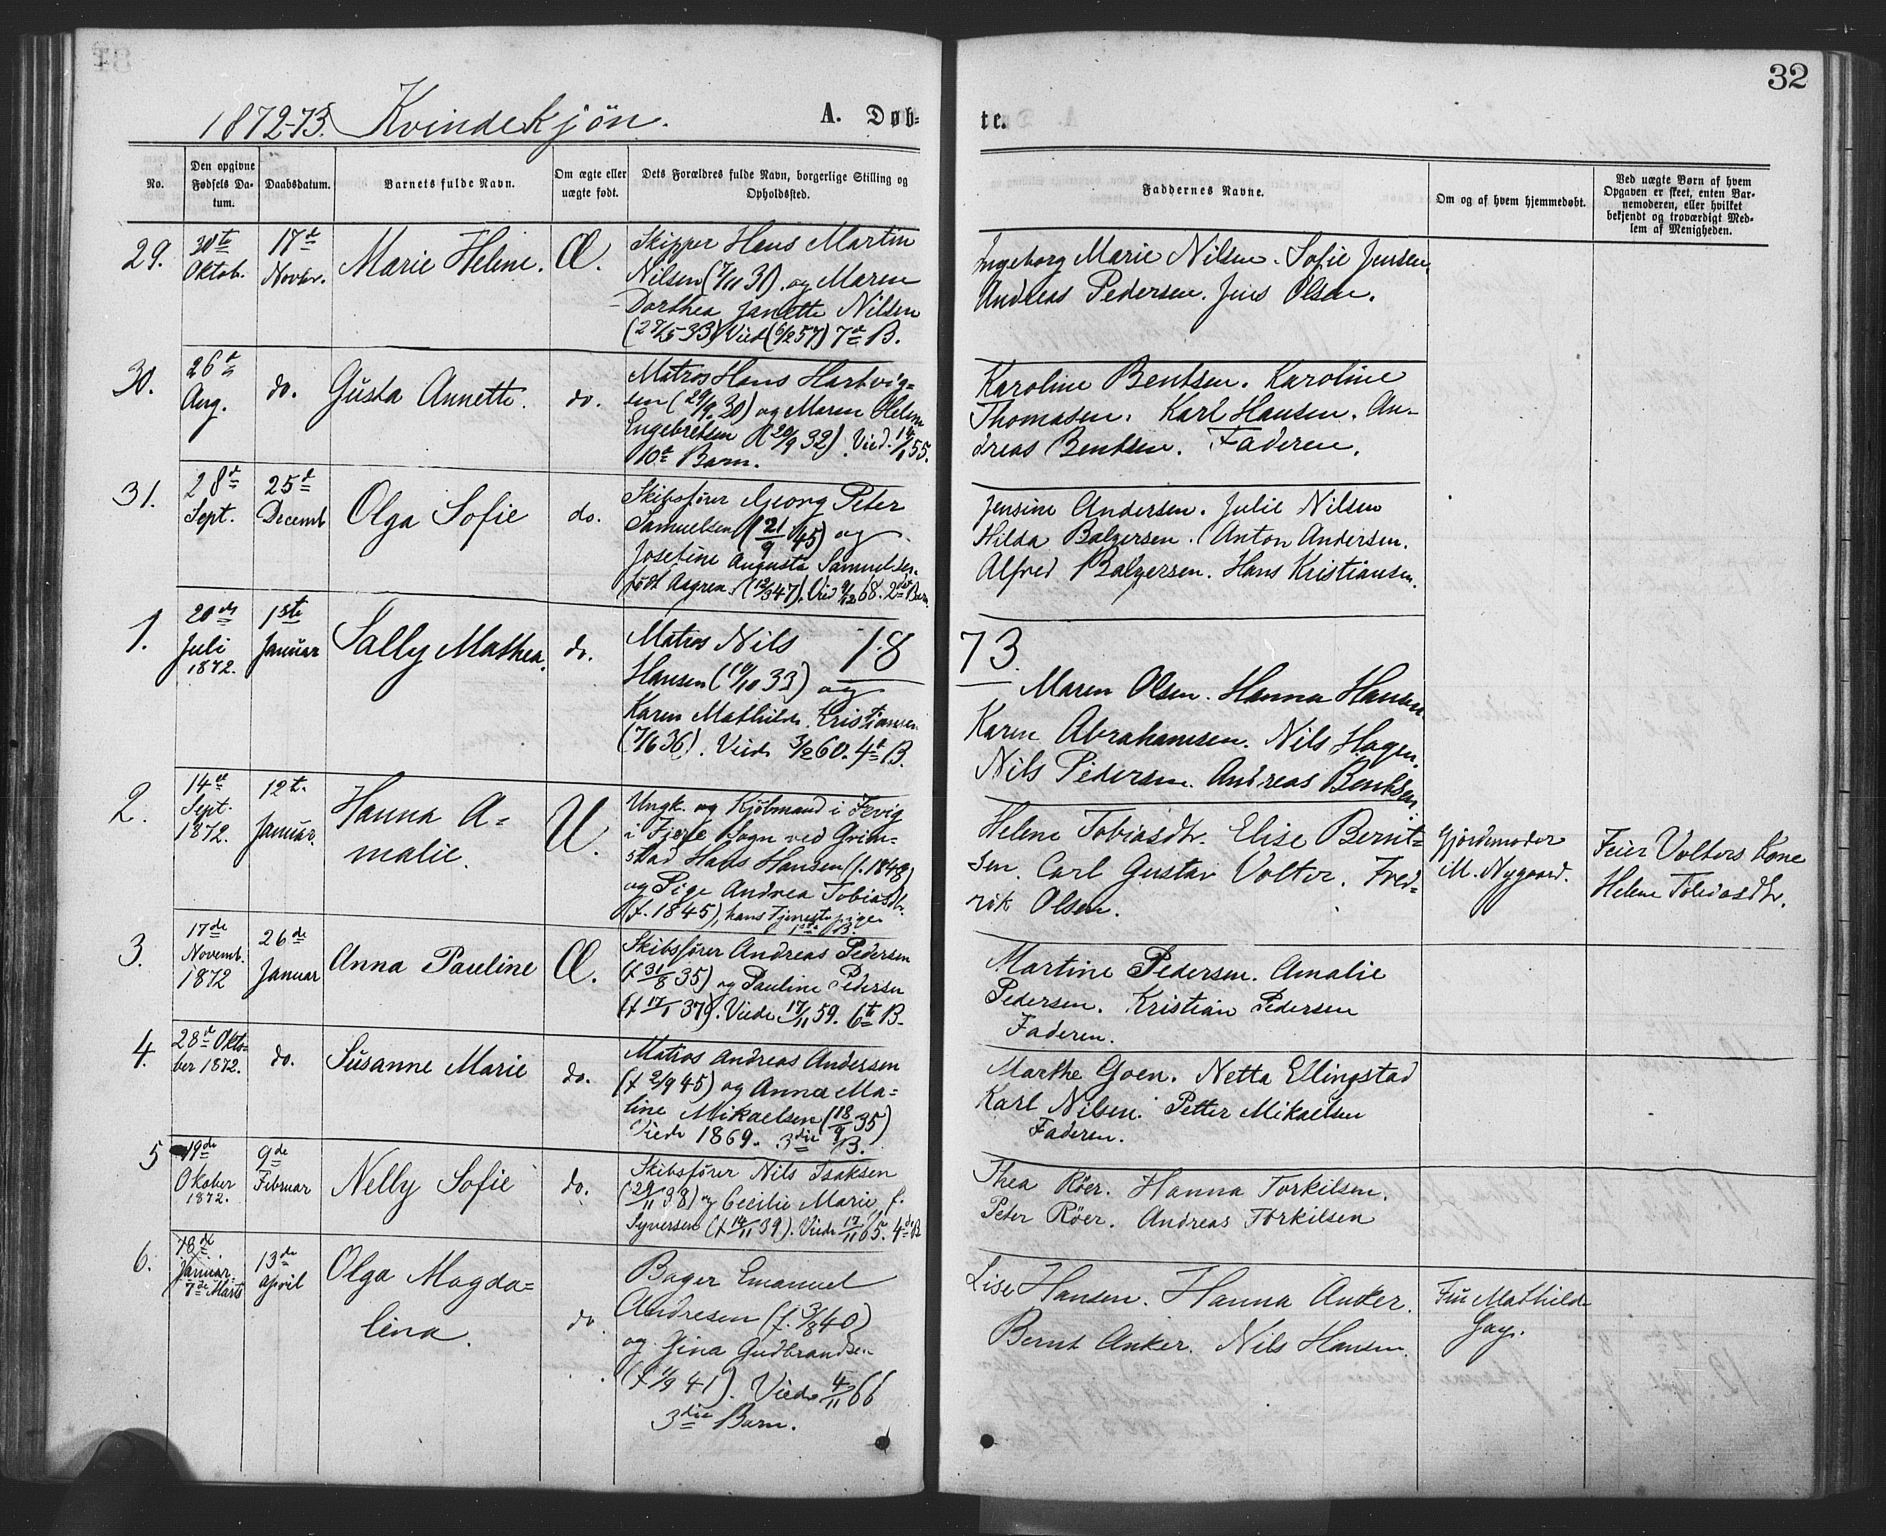 32
1872-73. Kvindekjön.
A. Døb-
te.
No.
Den opgivne Fødsels Da-
tum.
Daabsdatum.
Barnets fulde Navn.
Om ægte eller
uægte født.
Dets Forældres fulde Navn, borgerlige Stilling og
Opholdssted.
Faddernes Navne.
Om og af hvem hjemmedøbt.
Ved uægte Børn af hvem
Opgaven er skeet, enten Bar-
nemoderen, eller hvilket
bekjendt og troværdigt Med-
lem af Menigheden.
29.
30te
Oktob.
17de
Novbr.
Marie Helene.
Æ.
Skipper Hans Martin
Nilsen (7/11 31). og Maren
Dorthea Janette Nilsen
(27/5 33) Viede (6/2 57) 7de B.
Ingeborg Marie Nilsen. Sofie Jensen,
Andreas Pedersen. Jens Olsen.
30.
26de
Aug.
do.
Gusta Annette.
do.
Matros Hans Hartvig-
sen (29/9 30) og Maren Helene
Engebretsen (20/9 32). Vied. 14/1 55.
10de Barn.
Karoline Bentsen. Karoline
Thomasen. Karl Hansen. An-
dreas Bentsen. Faderen.
31.
28de
Sept.
25de
Decemb
Olga Sofie
do.
Skibsfører Georg Peter
Samuelsen (21/9 45) og
Josefine Augusta Samuelsen
født Aagren. (12/3 47). Vied 9/12 68. 2det Barn.
Jensine Andersen. Julie Nilsen
Hilda Balgersen. Anton Andersen.
Alfred Balgersen. Hans Kristiansen.
1873.
1.
20de
Juli
1872.
1ste
Januar
Sally Mathea.
do.
Matros Nils
Hansen (10/10 33) og
Karen Mathilde Kristiansen
(7/6 36). Viede 3/2 60. 4de B.
Maren Olsen. Hanna Hansen
Karen Abrahamsen. Nils Hagen.
Nils Pedersen. Andreas Bentsen
2.
14de
Sept.
1872.
12te
Januar.
Hanna A-
malie.
U.
Ungk. og Kjøbmand i Fevig
i Fjære Sogn ved Grim-
stad Hans Hansen (f. 1848)
og Pige Andrea Tobiasdtr.
(f. 1845), hans Tjenestepige
1ste B.
Helene Tobiasdtr. Elise Bernt-
sen. Carl Gustav Volter. Fred-
rik Olsen.
Gjordemoder
M. Nygaard.
Feier Volters Kone
Helene Tobiasdtr.
3.
17de
Novemb.
1872
26de
Januar
Anna Pauline
Æ.
Skibsfører Andreas Pedersen
(f 31/8 35) og Pauline Pedersen
(f 17/1 37). Viede 17/11 59. 6te B.
Martine Pedersen. Amalie
Pedersen. Kristian Pedersen
Faderen.
4.
28de Okto-
ber 1872.
do.
Susanne Marie
do.
Matros Andreas Andersen
(f 2/9 45) og Anna Ma-
line Mikaelsen (18/9 35)
Viede 1869. 3die B.
Marthe Goen. Netta Ellingstad
Karl Nilsen. Petter Mikaelsen
Faderen.
5
19de
Oktober
1872.
9de
Februar
Nelly Sofie
do.
Skibsfører Nils Isaksen
(29/11 38) og Cecilie Marie f.
Syversen (f 14/11 39). Viede 17/11 65. 4de B
Thea Röer. Hanna Torkilsen.
Peter Röer. Andreas Torkilsen
6.
18de
Januar.
7de Marts
13de
April
Olga Magda-
lena.
do.
Bager Emanuel
Andresen (f. 3/8 40)
og Jina Gudbrandsen
(f 1/9 41). Viede 4/11 66
3die Barn.
Lise Hansen. Hanna Anker.
Bernt Anker. Nils Hansen.
Fru Mathilde
Gay.